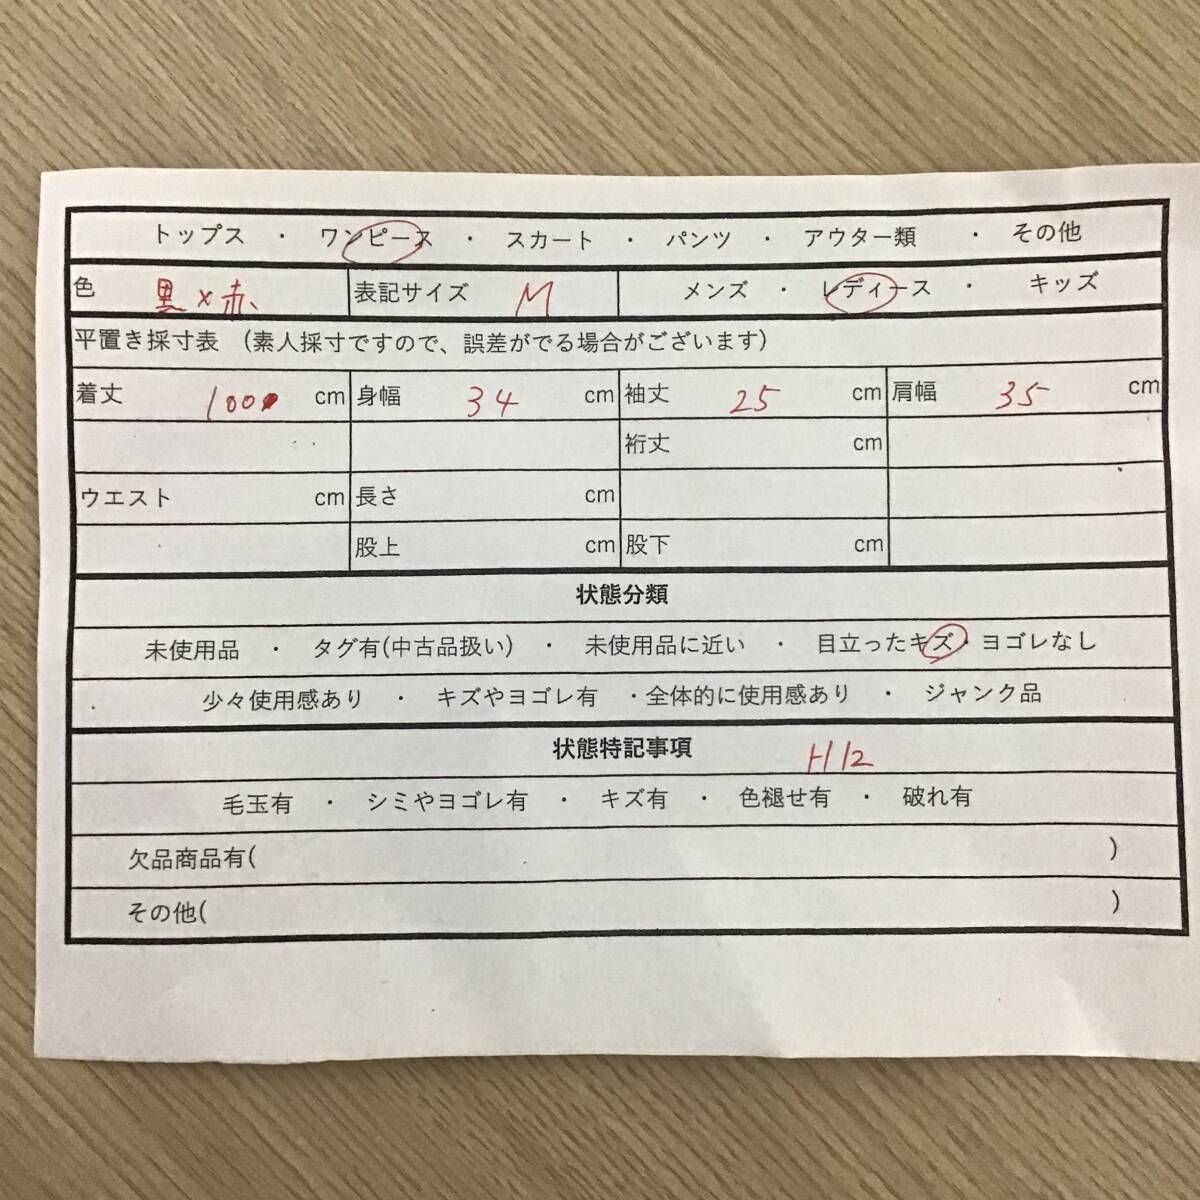 トップス ・ ワンピース ・ スカート ・ パンツ ・ アウター類 ・ その他
色 黒×赤 表記サイズ M メンズ ・ レディース ・ キッズ
平置き採寸表 (素人採寸ですので、誤差がでる場合がございます)
着丈 100 cm 身幅 34 cm 袖丈 25 cm 肩幅 35 cm
裄丈 cm
ウエスト cm 長さ cm
股上 cm 股下 cm
状態分類
未使用品 ・ タグ有(中古品扱い) ・ 未使用品に近い ・ 目立ったキズ・ヨゴレなし
少々使用感あり ・ キズやヨゴレ有 ・全体的に使用感あり ・ ジャンク品
状態特記事項 H12
毛玉有 ・ シミやヨゴレ有 ・ キズ有 ・ 色褪せ有 ・ 破れ有
欠品商品有( )
その他( )